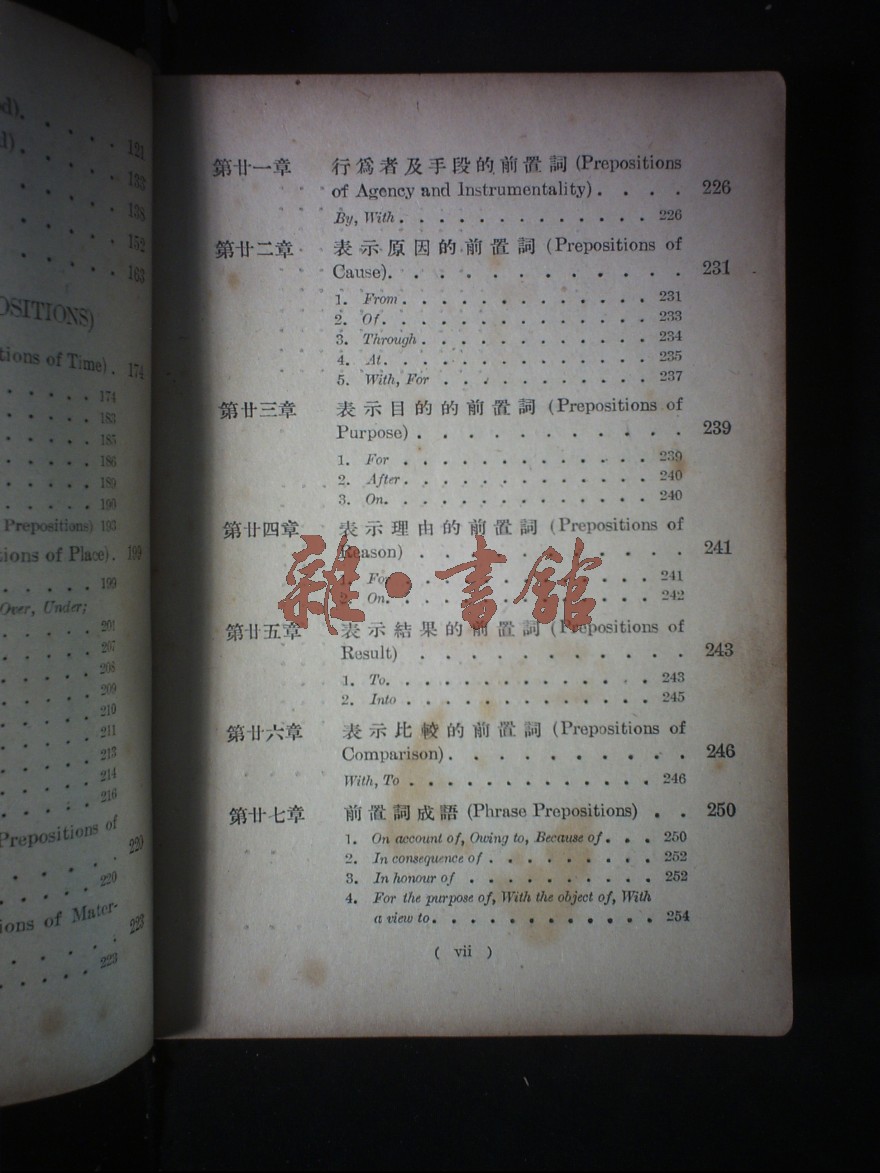 d).
d). . . . . 121
133
138
152
163
OSITIONS)
tions of Time) . 174
. . . . . 174
. . . . . 183
. . . . . 185
. . . . . 186
. . . . . 189
. . . . . 190
Prepositions) 193
tions of Place) . 199
. . . . . 199
Over, Under;
. . . . . 201
. . . . . 207
. . . . . 208
. . . . . 209
. . . . . 210
. . . . . 211
. . . . . 213
. . . . . 214
. . . . . 216
Prepositions of
. . . . . 220
. . . . . 220
ions of Mater-
. . . . . 223
. . . . . 223
第廿一章 行爲者及手段的前置詞 (Prepositions
of Agency and Instrumentality) . . . . 226
By, With . . . . . . . . . . . . . 226
第廿二章 表示原因的前置詞 (Prepositions of
Cause) . . . . . . . . . . . . 231
1. From . . . . . . . . . . . . . 231
2. Of . . . . . . . . . . . . . . 233
3. Through . . . . . . . . . . . . 234
4. At . . . . . . . . . . . . . . 235
5. With, For . . . . . . . . . . . 237
第廿三章 表示目的的前置詞 (Prepositions of
Purpose) . . . . . . . . . . . 239
1. For . . . . . . . . . . . . . 239
2. After . . . . . . . . . . . . . 240
3. On . . . . . . . . . . . . . . 240
第廿四章 表示理由的前置詞 (Prepositions of
Reason) . . . . . . . . . . . 241
1. For . . . . . . . . . . . . . 241
2. On . . . . . . . . . . . . . . 242
雜·書館
第廿五章 表示結果的前置詞 (Prepositions of
Result) . . . . . . . . . . . 243
1. To . . . . . . . . . . . . . . 243
2. Into . . . . . . . . . . . . . 245
第廿六章 表示比較的前置詞 (Prepositions of
Comparison) . . . . . . . . . . 246
With, To . . . . . . . . . . . . . 246
第廿七章 前置詞成語 (Phrase Prepositions) . . 250
1. On account of, Owing to, Because of . . . 250
2. In consequence of . . . . . . . . . 252
3. In honour of . . . . . . . . . . 252
4. For the purpose of, With the object of, With
a view to . . . . . . . . . . . 254
( vii )